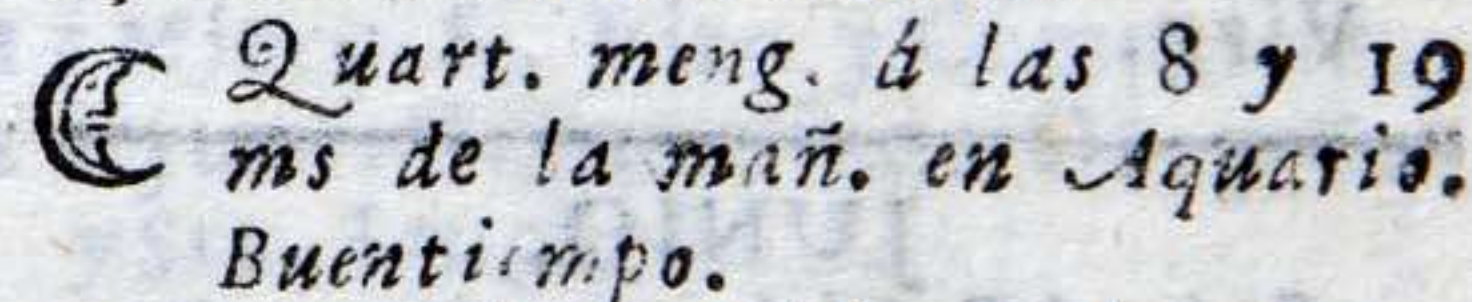 Quart. meng. á las 8 y 19
ms de la mañ. en Aquario.
Buentiempo.